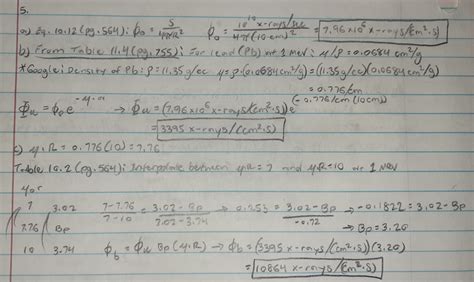 5.
a) Eq. 10.12 (pg. 564): ϕ₀ = S/4πR² ϕ₀ = 10¹⁰ x-rays/sec / 4π(10cm)² = 7.96x10⁶ x-rays/(cm²·s)
b) From Table 11.4 (pg. 755): For lead (Pb) at 1 MeV: μ/ρ = 0.0684 cm²/g
*Google: Density of Pb: ρ = 11.35 g/cc μ = ρ·(0.0684 cm²/g) = (11.35 g/cc)(0.0684 cm²/g)
= 0.776/cm
Φu = Φ₀e^-μ·R → Φu = (7.96x10⁶ x-rays/(cm²·s))e^(-0.776/cm)(10cm)
= 3395 x-rays/(cm²·s)
c) μ·R = 0.776(10) = 7.76
Table 10.2 (pg. 564): Interpolate between μR = 7 and μR = 10 at 1 MeV
μ₀r
7 3.02 7-7.76/7-10 = 3.02-Bp/3.02-3.74 → 0.253 = 3.02-Bp/-0.72 → -0.1822 = 3.02-Bp
7.76 Bp → Bp = 3.20
10 3.74 ϕb = ϕu Bp(μ·R) → ϕb = (3395 x-rays/(cm²·s))(3.20)
= 10864 x-rays/(cm²·s)